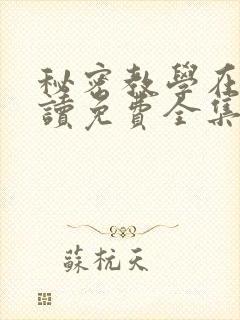 秘密教學在
讀免費全集
蘇杭天